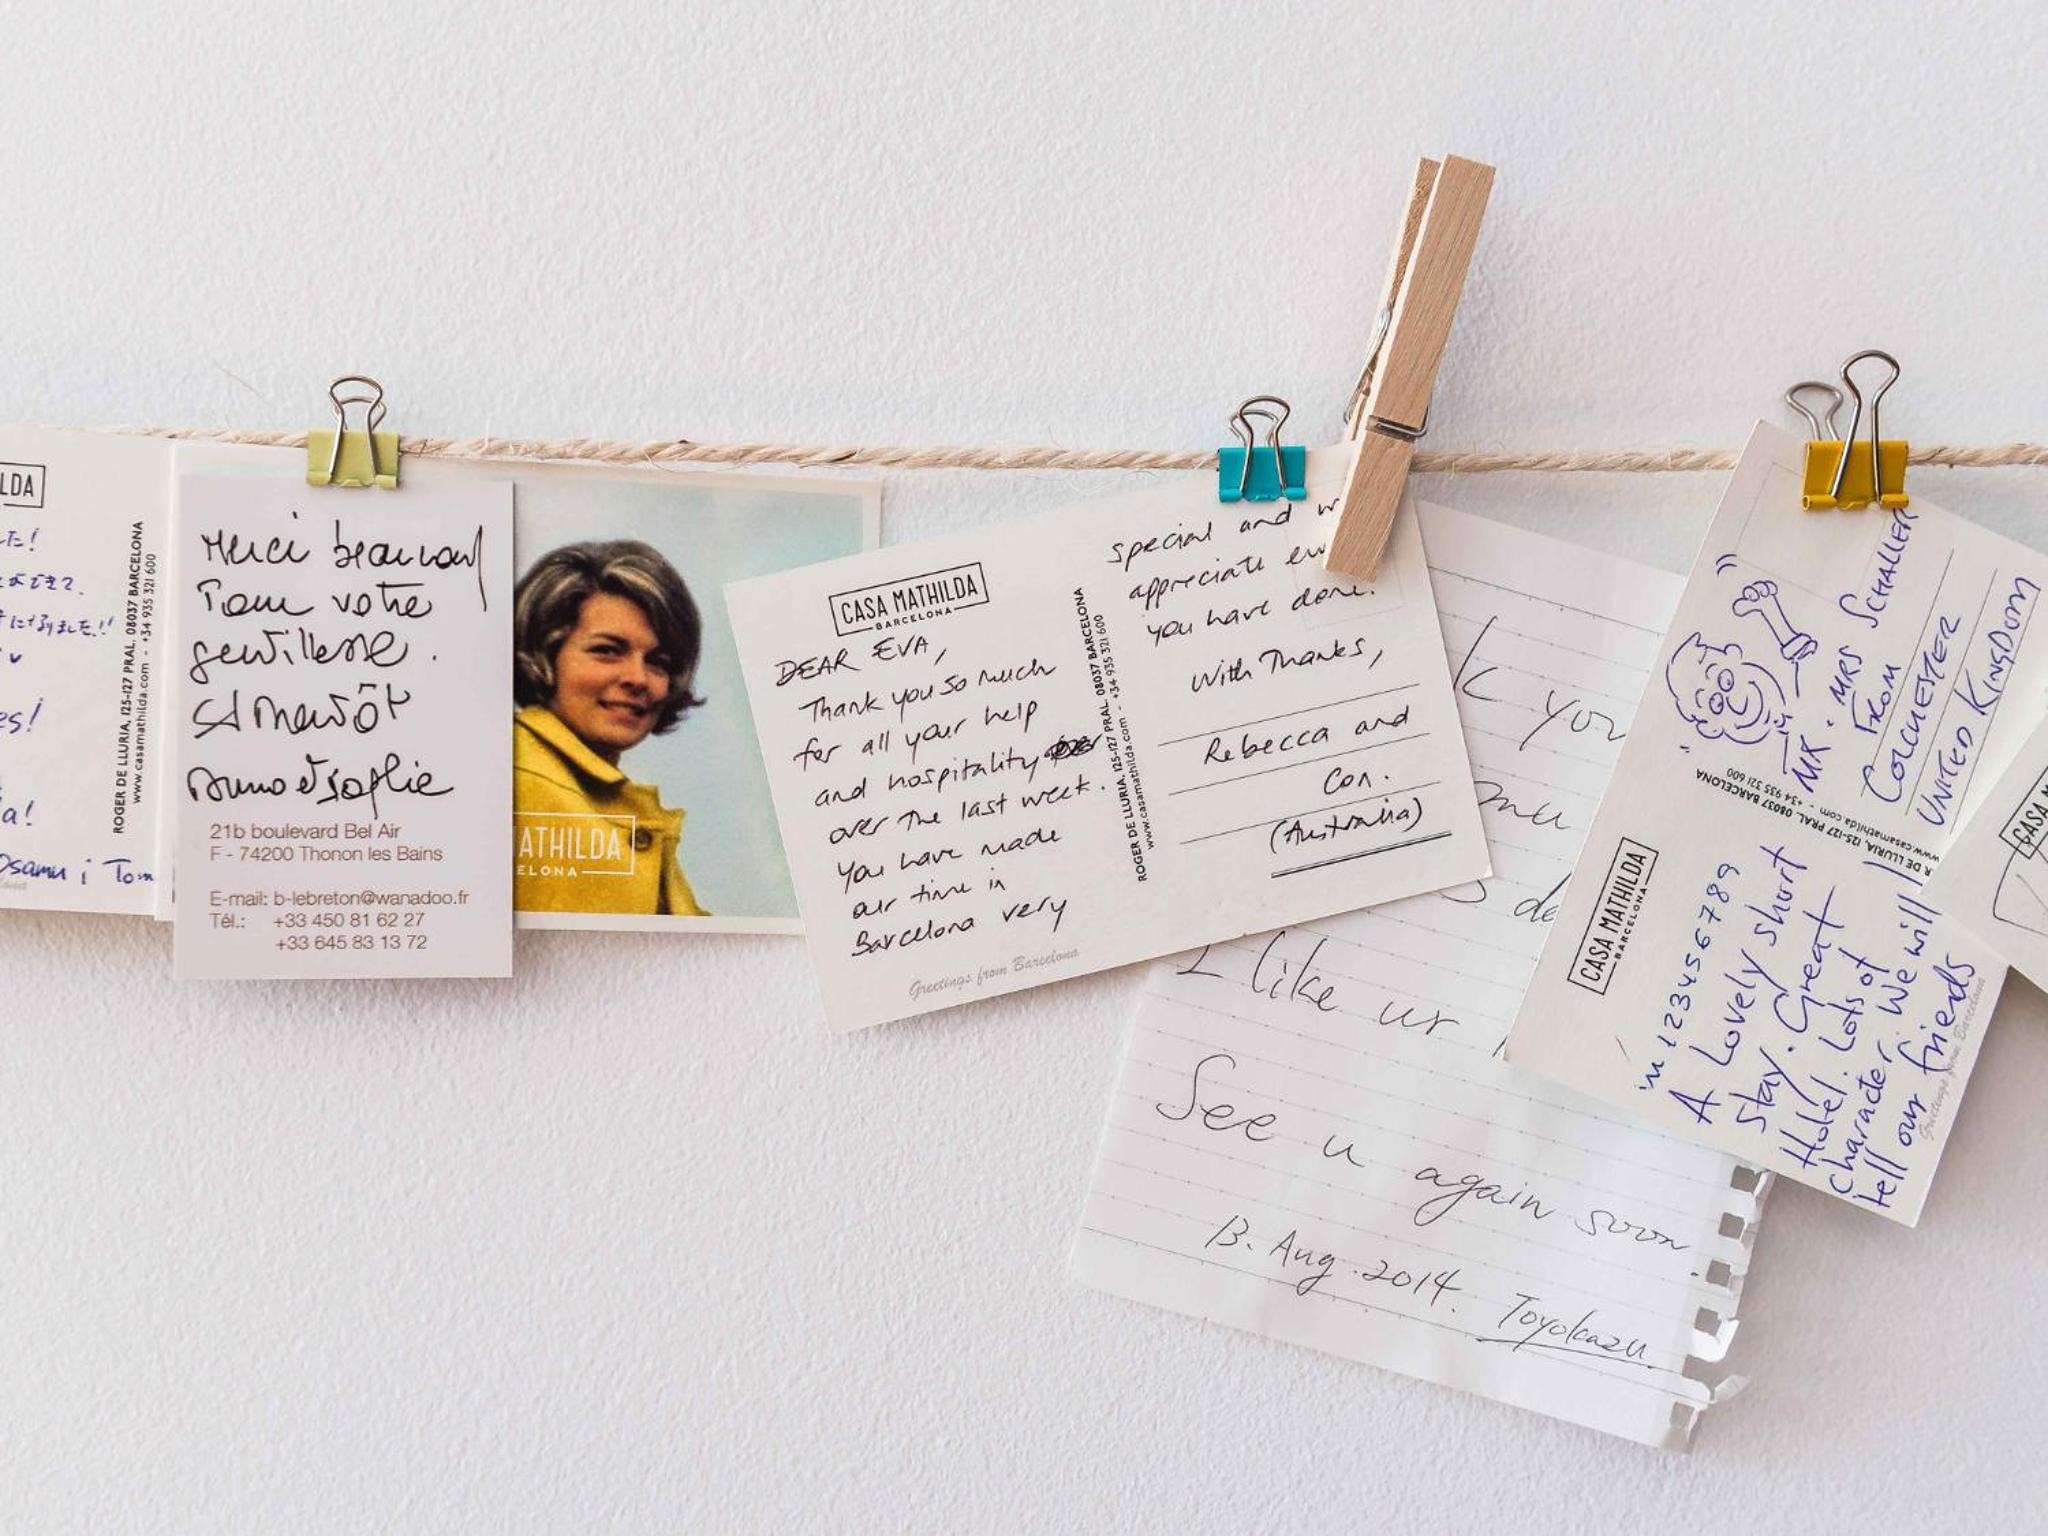 LDA
た!
ROGER DE LLURIA, 125-127 PRAL. 08037 BARCELONA
www.casamathilda.com - +34 935 321 600
es!
a!
Osamu i Tom
Merci beaucoup
Pour votre
gentillesse.
et Sophie
21b boulevard Bel Air
F - 74200 Thonon les Bains
E-mail: b-lebreton@wanadoo.fr
Tél.: +33 450 81 62 27
+33 645 83 13 72
MATHILDA
ELONA
CASA MATHILDA
BARCELONA
DEAR EVA,
Thank you so much
for all your help
and hospitality
over the last week.
You have made
our time in
Barcelona very
Greetings from Barcelona
ROGER DE LLURIA, 125-127 PRAL. 08037 BARCELONA
www.casamathilda.com - +34 935 321 600
special and w
appreciate ev
you have done.
With Thanks,
Rebecca and
Con.
(Australia)
k you
I like ur
See u again soon.
13. Aug. 2014.
Toyokazu
MR + MRS SCHALLER
FROM
COLCHESTER
UNITED KINGDOM
DE LLURIA, 125-127 PRAL. 08037 BARCELONA
www.casamathilda.com - +34 935 321 600
CASA MATHILDA
BARCELONA
in 123456789
A Lovely short
stay. Great
Hotel. Lots of
character. We will
tell our friends
Greetings from Barcelona
CASA M